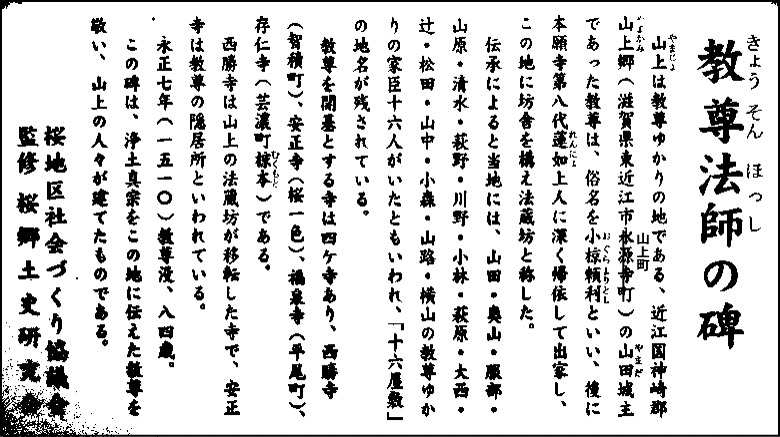 きょう そん ほっし
教尊法師の碑
やまじょ
山上は教尊ゆかりの地である、近江国神崎郡
やまかみ やまだ
山上郷(滋賀県東近江市永源寺町)の山田城主
山上町
おぐらよりとし
であった教尊は、俗名を小椋頼利といい、後に
れんにょ
本願寺第八代蓮如上人に深く帰依して出家し、
この地に坊舎を構え法蔵坊と称した。
伝承によると当地には、山田・奥山・服部・
山原・清水・荻野・川野・小林・荻原・大西・
辻・松田・山中・小森・山路・横山の教尊ゆか
りの家臣十六人がいたともいわれ、「十六屋敷」
の地名が残されている。
教尊を開基とする寺は四ケ寺あり、西勝寺
(智積町)、安正寺(桜一色)、福泉寺(平尾町)、
むくもと
存仁寺(芸濃町椋本)である。
西勝寺は山上の法蔵坊が移転した寺で、安正
寺は教尊の隠居所といわれている。
永正七年(一五一〇)教尊没、八四歳。
この碑は、浄土真宗をこの地に伝えた教尊を
敬い、山上の人々が建てたものである。
桜地区社会づくり協議会
監修 桜郷土史研究会